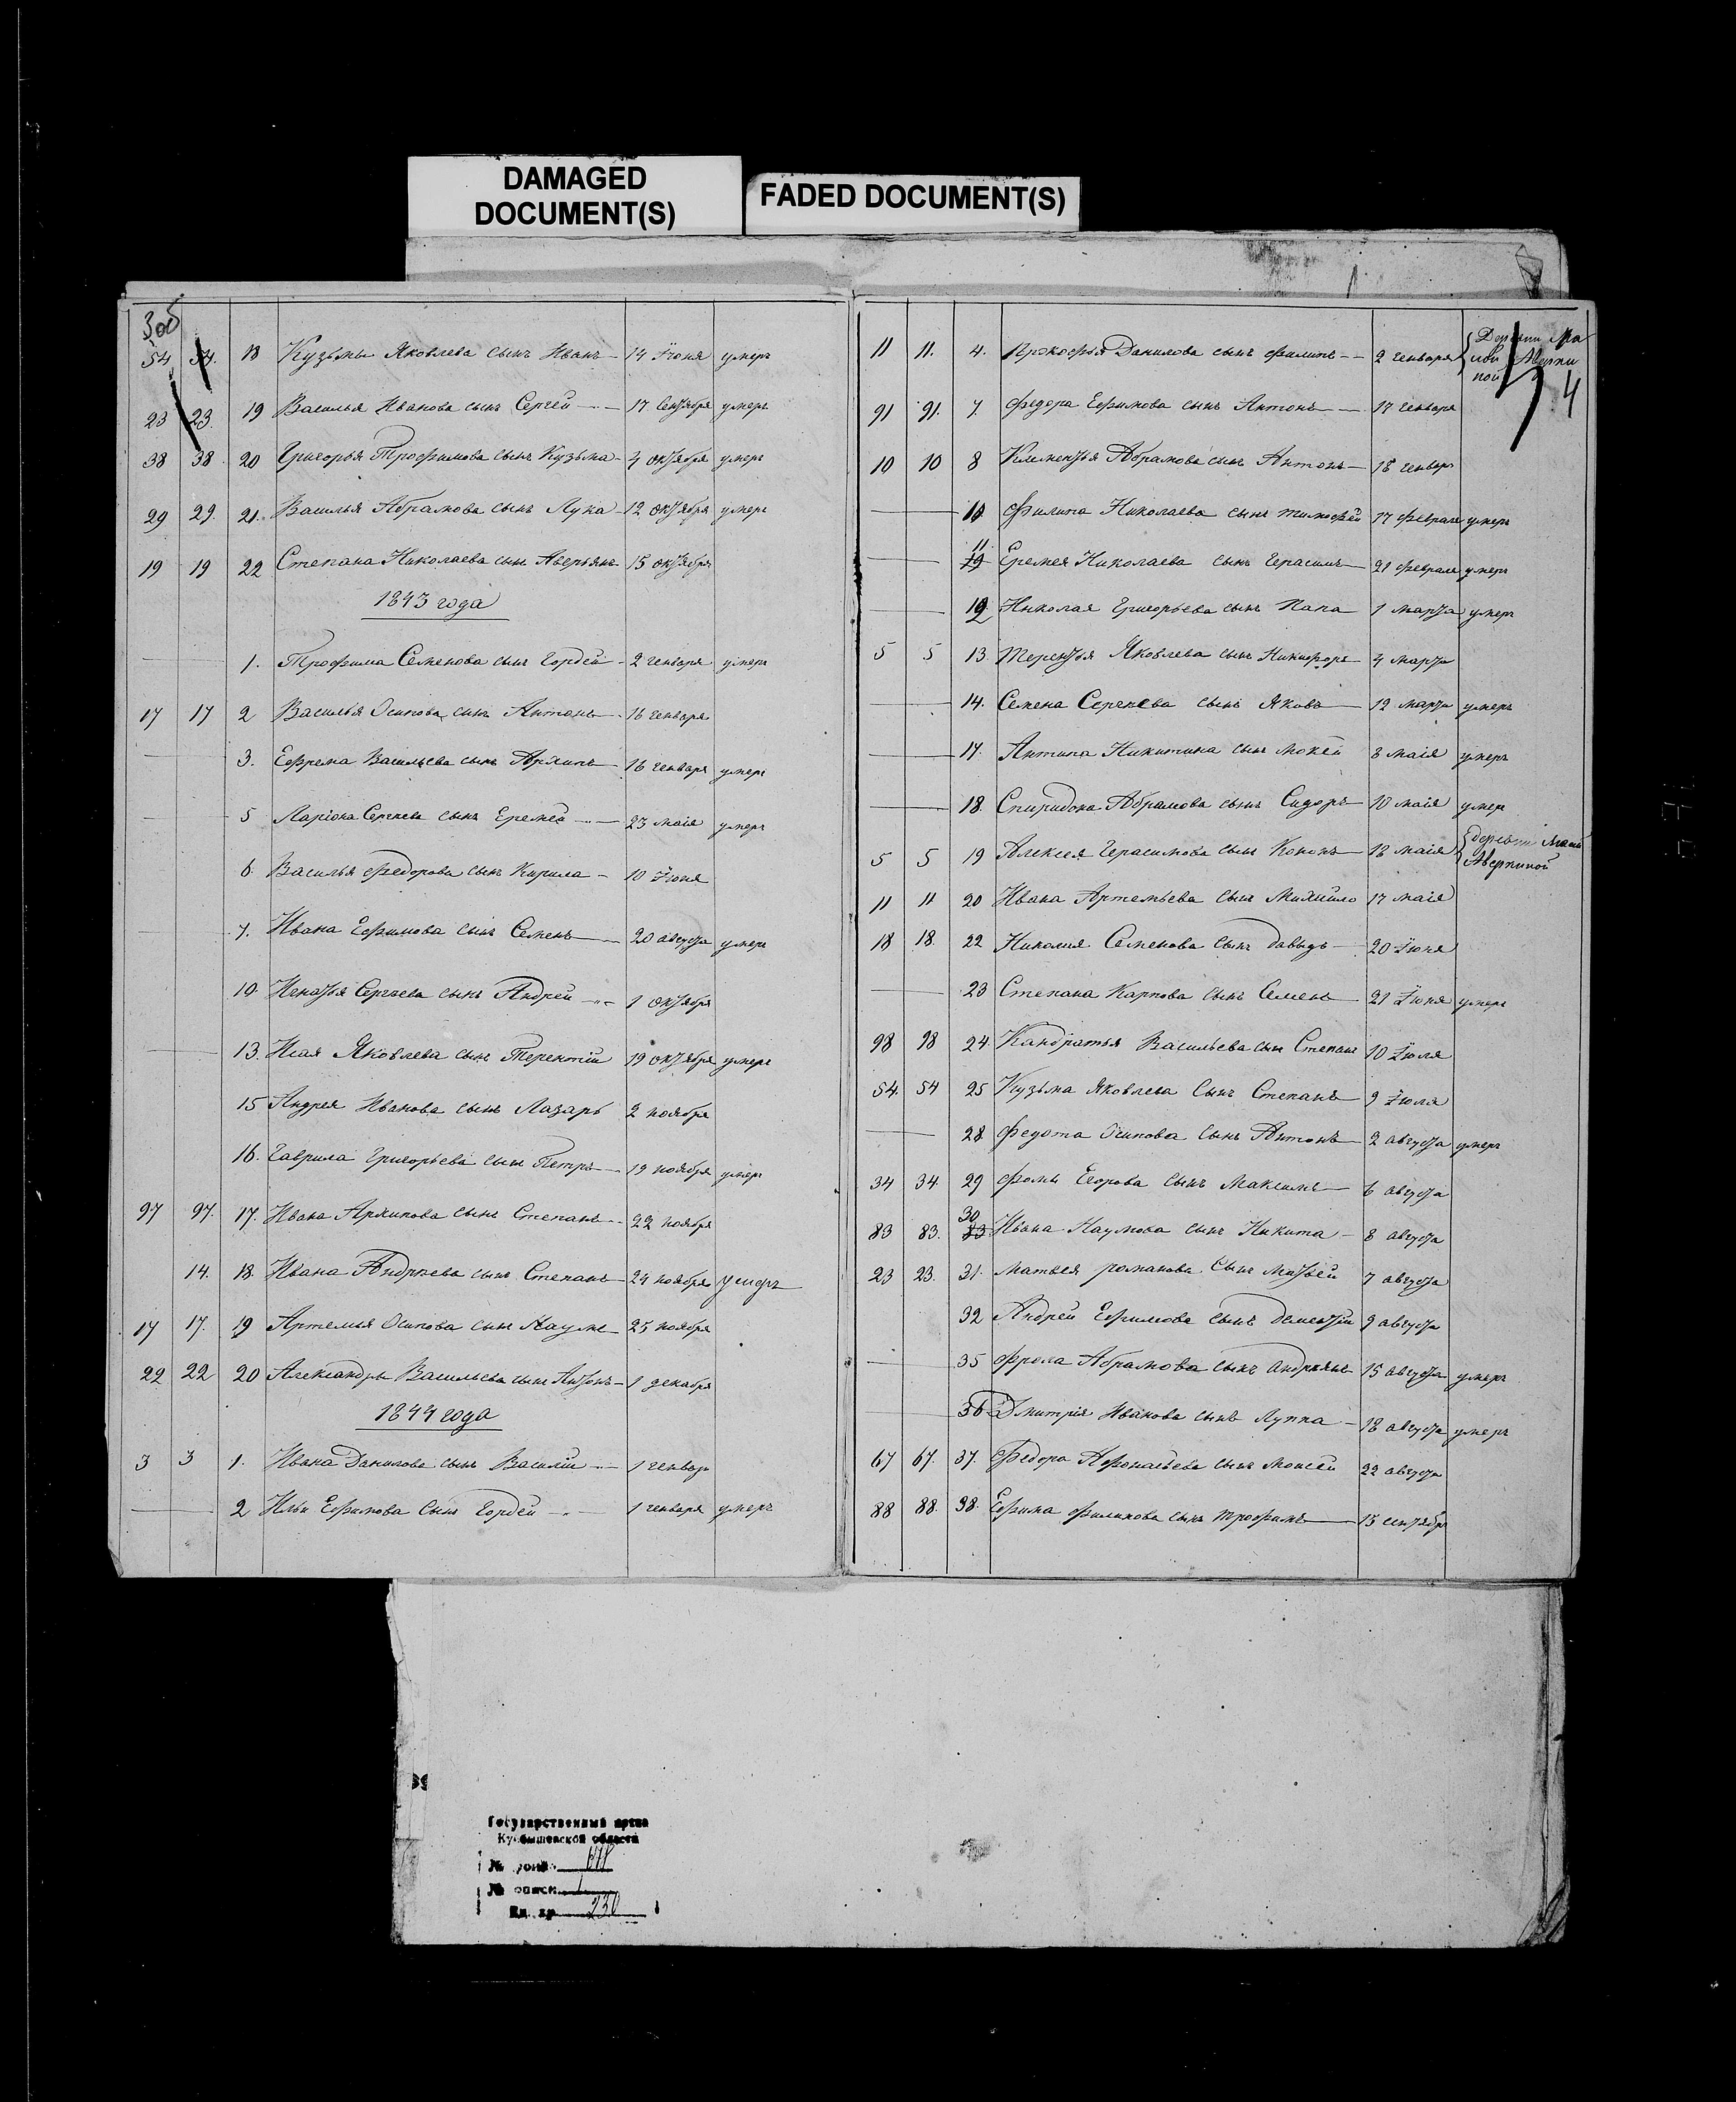 DAMAGED
DOCUMENT(S)
FADED DOCUMENT(S)
3об
54 54. 18 Кузьмы Яковлева сынъ Иванъ 14 Iюня умеръ
23 23. 19 Василья Иванова сынъ Сергей 17 Сентября умеръ
38 38 20 Григорья Трофимова сынъ Кузьма 4 октября умеръ
29 29. 21. Василья Абрамова сынъ Лука 12 октября умеръ
19 19 22 Степана Николаева сынъ Аверьянъ 15 октября
1843 года
1. Трофима Семенова сынъ Гордей 2 генваря умеръ
17 17 2 Василья Осипова сынъ Антонъ 16 генваря
3. Ефрема Васильева сынъ Архипъ 16 генваря умеръ
5 Ларiона Сергеева сынъ Еремей 23 маiя умеръ
6. Василья Федорова сынъ Кирила 10 Iюня
7. Ивана Ефимова сынъ Семенъ 20 августа умеръ
10 Игнатья Сергеева сынъ Андрей 1 октября
13. Исая Яковлева сынъ Терентiй 19 октября умеръ
15 Андрея Иванова сынъ Лазарь 2 ноября
16. Гаврила Григорьева сынъ Петръ 19 ноября умеръ
97 97. 17. Ивана Архипова сынъ Степанъ 22 ноября
14. 18. Ивана Андреева сынъ Степанъ 24 ноября умеръ
17 17. 19 Артемья Осипова сынъ Наумъ 25 ноября
22 22 20 Александра Васильева сынъ Антонъ 1 декабря
1844 года
3 3 1. Ивана Данилова сынъ Василiй 1 генвар
2 Ильи Ефимова Сынъ Гордей 1 генваря умеръ
4
11 11. 4. Прокофья Данилова сынъ Филипъ 2 генваря Дервни Ма
лой Аверки
ной
91 91. 7. Федора Ефимова сынъ Антонъ 17 генваря
10 10 8 Клементья Абрамова сынъ Антонъ 18 генвар
10 Филипа Николаева сынъ Тимофей 17 феврале умеръ
11. Еремея Николаева сынъ Герасимъ 21 феврале умеръ
12 Николая Григорьева сынъ Папа 1 марта умеръ
5 5 13. Терентья Яковлева сынъ Никифоръ 4 марта
14. Семена Сергеева сынъ Яковъ 12 марта умеръ
17. Антипа Никитина сынъ Мокей 8 маiя умеръ
18. Спиридона Абрамова сынъ Сидоръ 10 маiя умер
5 5 19 Алексея Герасимова сынъ Кононъ 18 маiя Малой
Аверкиной
11 11 20 Ивана Артемьева сынъ Михайло 17 маiя
18 18. 22 Николая Семенова сынъ Давыдъ 20 Iюня
23 Степана Карпова сынъ Семенъ 21 Iюня умеръ
98 98 24. Кандратья Васильева сын Степанъ 10 Iюля
54. 54 25 Кузьма Яковлева Сынъ Степанъ 9 Iюля
28 Федота Осипова Сынъ Антонъ 2 августа умеръ
34 34. 29 Фомы Егорова Сынъ Максимъ 6 августа
83 83. 30 Ивана Наумова сынъ Никита 8 августа
23 23. 31. Матвея романова Сынъ Матвей 7 августа
32 Андрей Ефимова сынъ Дементiй 9 августа
35 Фрола Абрамова сынъ Андреянъ 15 августа умеръ
36 Дмитрiя Иванова сынъ Луппа 18 августа умеръ
67 67. 37. Федора Афонасьева сынъ Моисей 22 августа
88 88. 38. Ефима Филипова сынъ Трофимъ 15 сентябр
Государственный архив
Куйбышевской области
№ фонда
№ описи 1
Ед. хр. 230